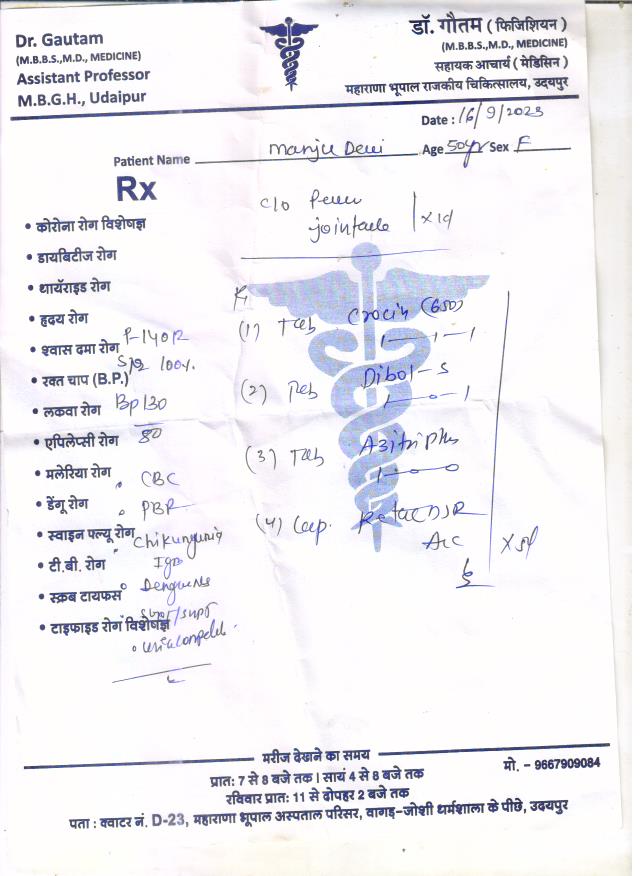 Dr. Gautam
(M.B.B.S.,M.D., MEDICINE)
Assistant Professor
M.B.G.H., Udaipur
डॉ. गौतम ( फिजिशियन )
(M.B.B.S.,M.D., MEDICINE)
सहायक आचार्य ( मेडिसिन )
महाराणा भूपाल राजकीय चिकित्सालय, उदयपुर
Date : 16/9/2023
Patient Name Manju Devi Age 50yr Sex F
Rx
c/o Fever
• कोरोना रोग विशेषज्ञ
• डायबिटीज रोग
• थायॅराइड रोग
• हृदय रोग
(1) Tab Crocin (650)
1—1—1
• श्वास दमा रोग P-140/2
• रक्त चाप (B.P.) 100%
(2) Tab Dibol-S
1—0—1
• लकवा रोग Bp 130
80
• एपिलेप्सी रोग
(3) Tab Azitriplus
1—0—0
• मलेरिया रोग
CBC
• डेंगू रोग
PBF
(4) Cap.
• स्वाइन फ्ल्यू रोग
Chikungunia
• टी.बी. रोग
IgM
• स्क्रब टायफस
Dengue NS
• टाइफाइड रोग विशेषज्ञ
SGOT/SGPT
मरीज देखाने का समय
प्रातः 7 से 8 बजे तक। सायं 4 से 8 बजे तक
मो. - 9667909084
रविवार प्रातः 11 से दोपहर 2 बजे तक
पता : क्वाटर नं. D-23, महाराणा भूपाल अस्पताल परिसर, वागड़-जोशी धर्मशाला के पीछे, उदयपुर